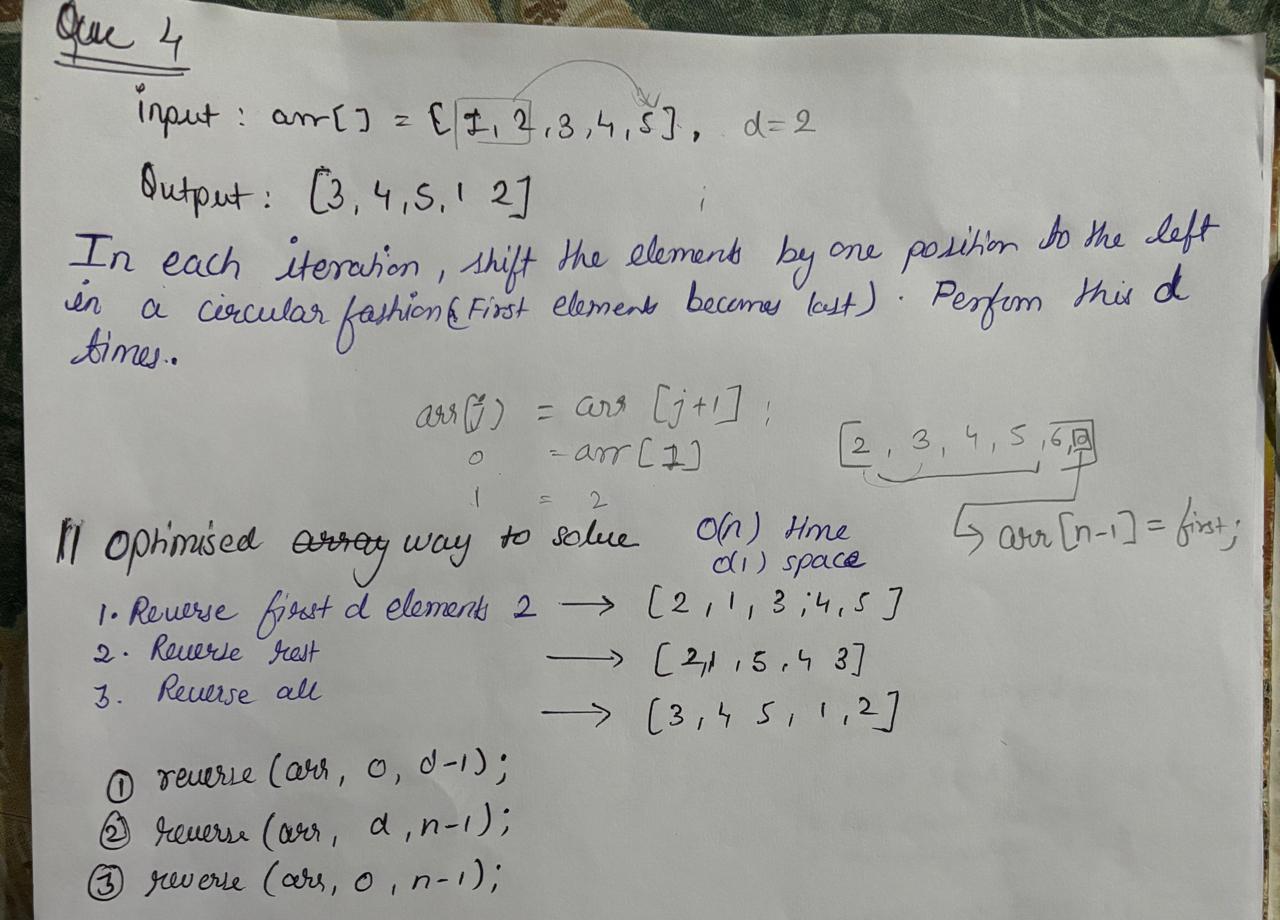 Que 4
input : arr[] = {1, 2, 3, 4, 5}, d=2
Output : [3, 4, 5, 1 2]
In each iteration, shift the elements by one position to the left
in a circular fashion (First element becomes last). Perfom this d
times..
arr[j] = arr [j+1] ;
0 = arr[1]
1 = 2
[2, 3, 4, 5, 6,
↳ arr[n-1] = first;
// Optimised array way to solve O(n) time
O(1) space
1. Reverse first d elements 2 → [2, 1, 3, 4, 5]
2. Reverse rest → [2,1, 5, 4 3]
3. Reverse all → [3, 4 5, 1, 2]
① reverse (arr, 0, d-1);
② reverse (arr, d, n-1);
③ reverse (arr, 0, n-1);